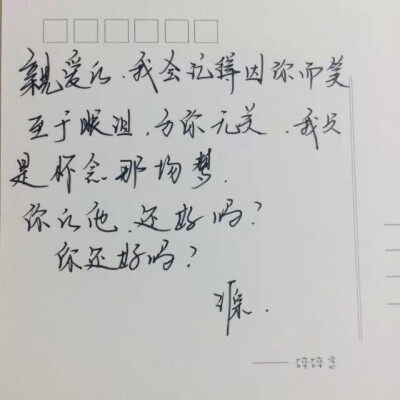 亲爱的.我会记得因你而笑
至于眼泪.与你无关.我只
是怀念那场梦.
你的他.还好吗?
你还好吗?
源.
——碎碎念